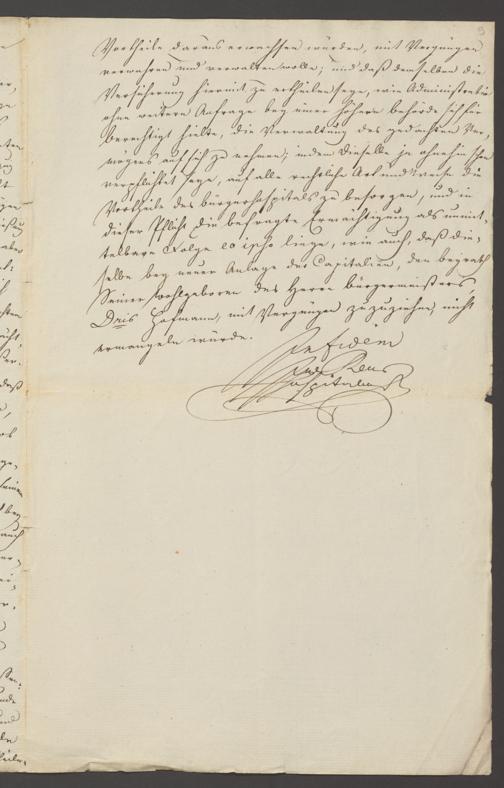 Vortheile daraus erwachsen würden, mit Vergnügen
verwahren und verwalten wolle; und daß demselben die
Versicherung hiermit zu ertheilen seye, wie Administratio
ohne weitere Anfrage bey einer höhern Behörde sich für
berechtigt hielte, die Verwaltung des gedachten Ver-
mögens auf sich zu nehmen; indem dieselbe ja ohnehin schon
verpflichtet seye, auf alle rechtliche Art und Weise die
Vortheile des Bürgerhospitals zu besorgen, und in
dieser Pflicht die befragte Ermächtigung als unmit-
telbare Folge eo ipso liege, wie auch, daß die-
selbe bey neuer Anlage der Capitalien, den Beyrath
Seiner Wohlgeboren des Herrn Bürgermeisters,
Dris Hofmann, mit Vergnügen zuzuziehen, nicht
ermangeln würde.
In fidem